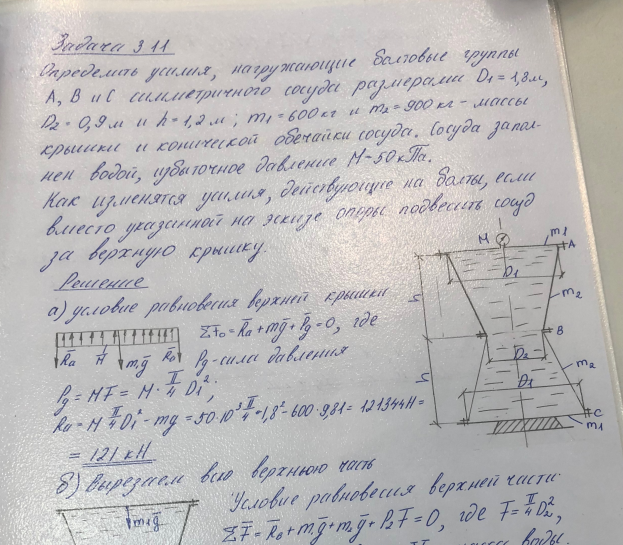 Задача 3.11
Определить усилия, нагружающие болтовые группы
A, B и C симметричного сосуда размерами D1=1,8м,
D2=0,9м и h=1,2м; m1=600кг и m2=900кг - массы
крышки и конической обечайки сосуда. Сосуд запол-
нен водой, избыточное давление M-50кПа.
Как изменятся усилия, действующие на болты, если
вместо указанной на эскизе опоры подвесить сосуд
за верхнюю крышку.
Решение
а) условие равновесия верхней крышки
ΣF̄0=R̄a+mḡ+P̄g=0, где
R̄a M̄ m1ḡ
Pg-сила давления
Pg=MF=M·π/4 D1²;
Ra=M π/4 D1²-mg=50·10³ π/4·1,8²-600·9,81=121344Н=
=121 кН
б) Вырезаем всю верхнюю часть
Условие равновесия верхней части:
ΣF̄=R̄в+m1ḡ+m2ḡ+P2F̄=0, где F̄=π/4 D2²,
m1ḡ
масса воды.
M
m1
A
D1
h
m2
B
D2
m2
h
D1
C
m1